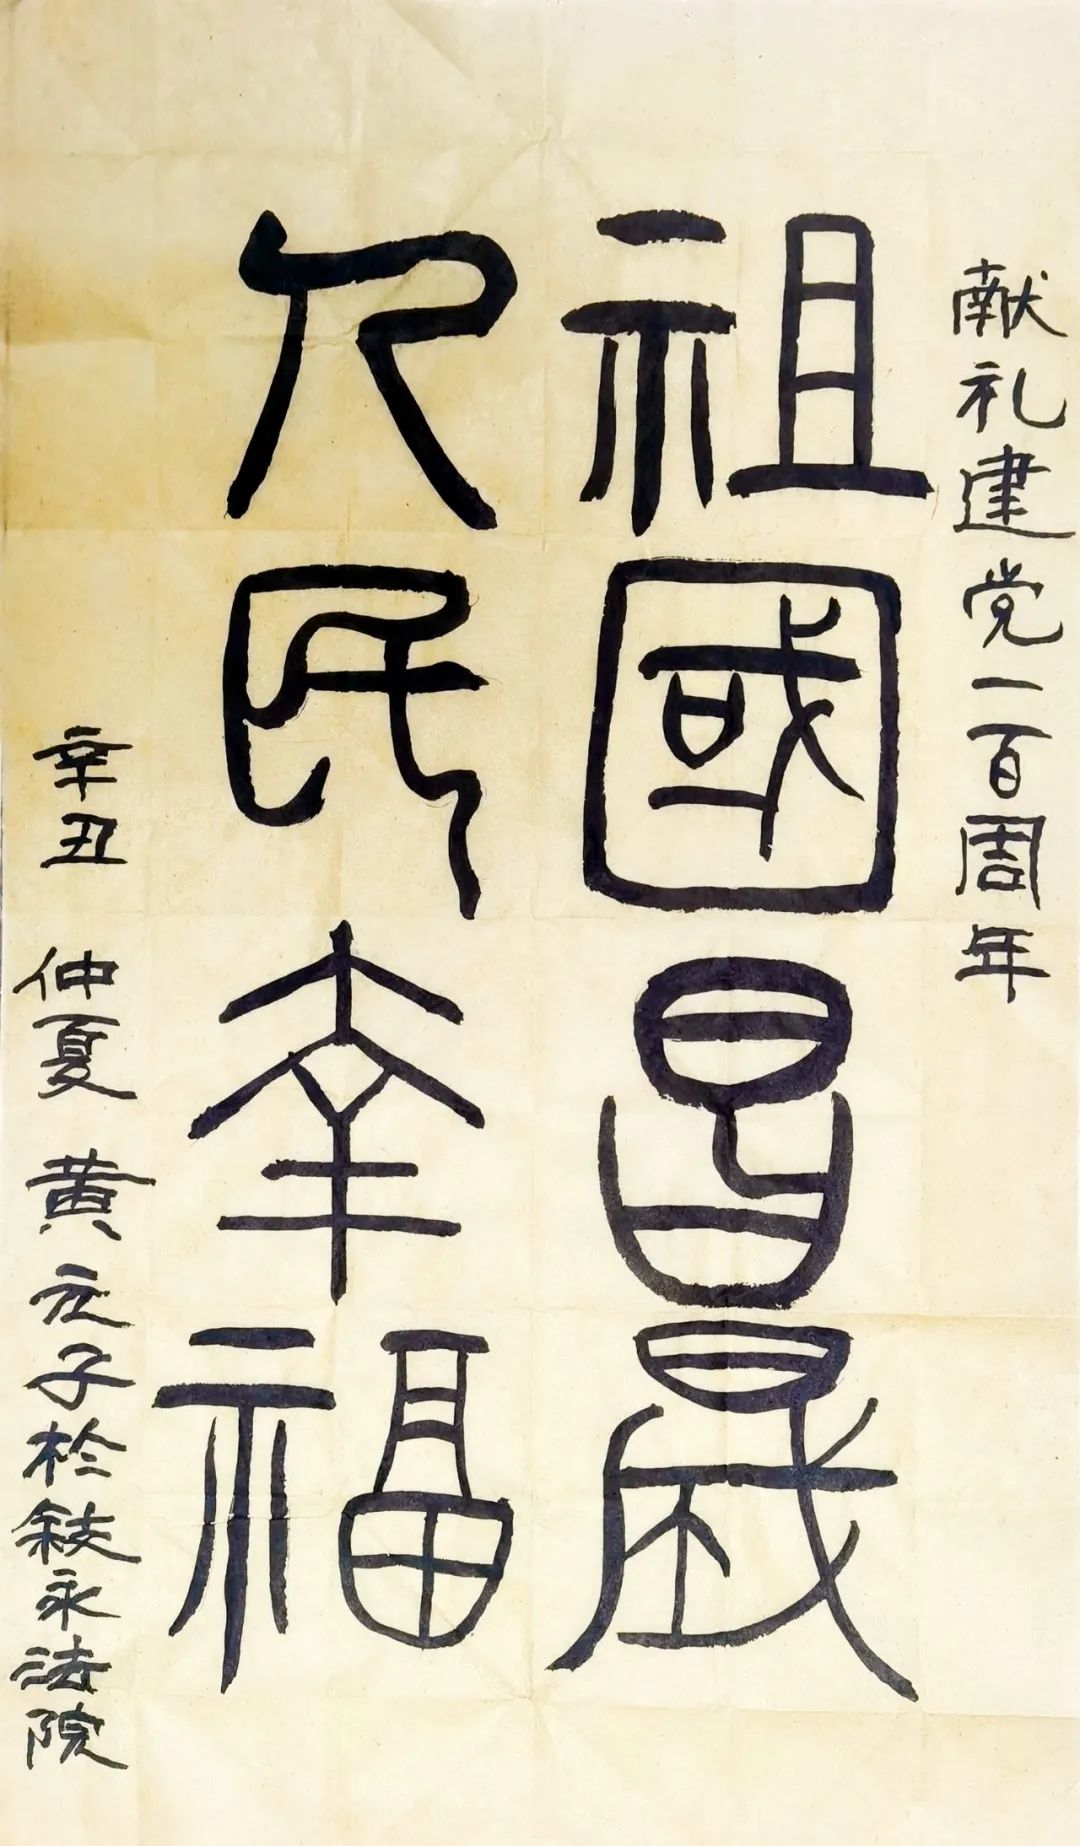 献礼建党一百周年
祖國昌晟
人民幸福
辛丑 仲夏 黄立子於敍永法院